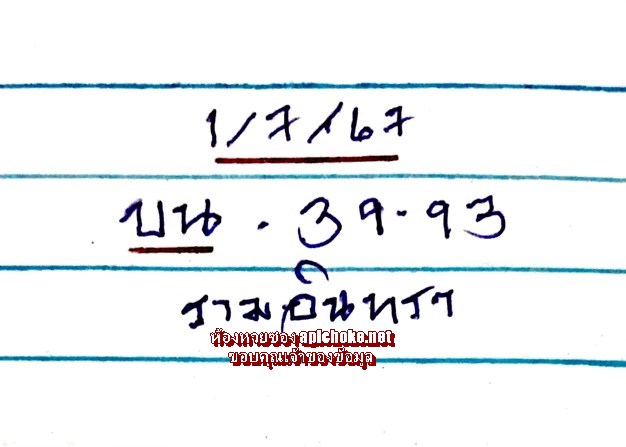 1/7/67
บน . 39-93
รามอินทรา
ห้องหวยซอง apichoke.net
ขอบคุณเจ้าของข้อมูล